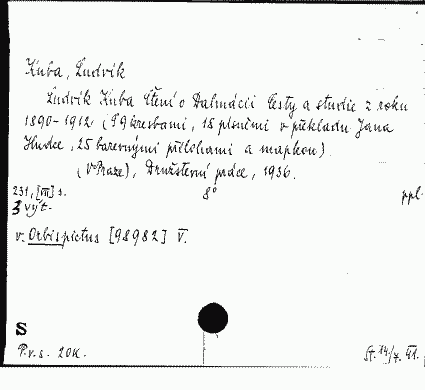 Kuba, Ludvík
Ludvík Kuba Čtení o Dalmácii Cesty a studie z roku
1890-1912 (59 kresbami, 18 písněmi v překladu Jana
Hudce, 25 barevnými přílohami a mapkou).
(V Praze), Družstevní práce, 1936.
231, [VII] s. 8° ppl.
3 výt.
v. Orbis pictus [98982] V.
S
P.v.s. 20K. St. 14/7. 41.